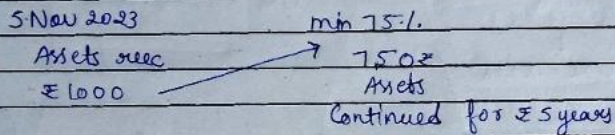 5 Nov 2023 min 75%
Assets rec 750₹
₹1000 Assets
Continued for ₹ 5 years